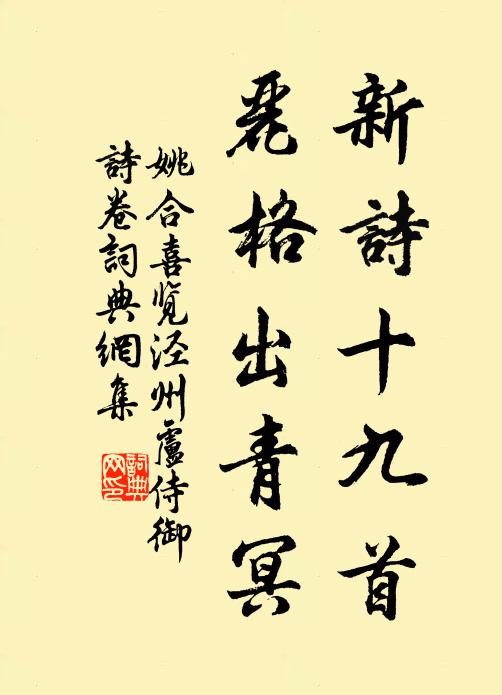 新詩十九首
麗格出青冥
姚合喜覽泾州盧侍御
詩卷詞典網集
詞典
网印